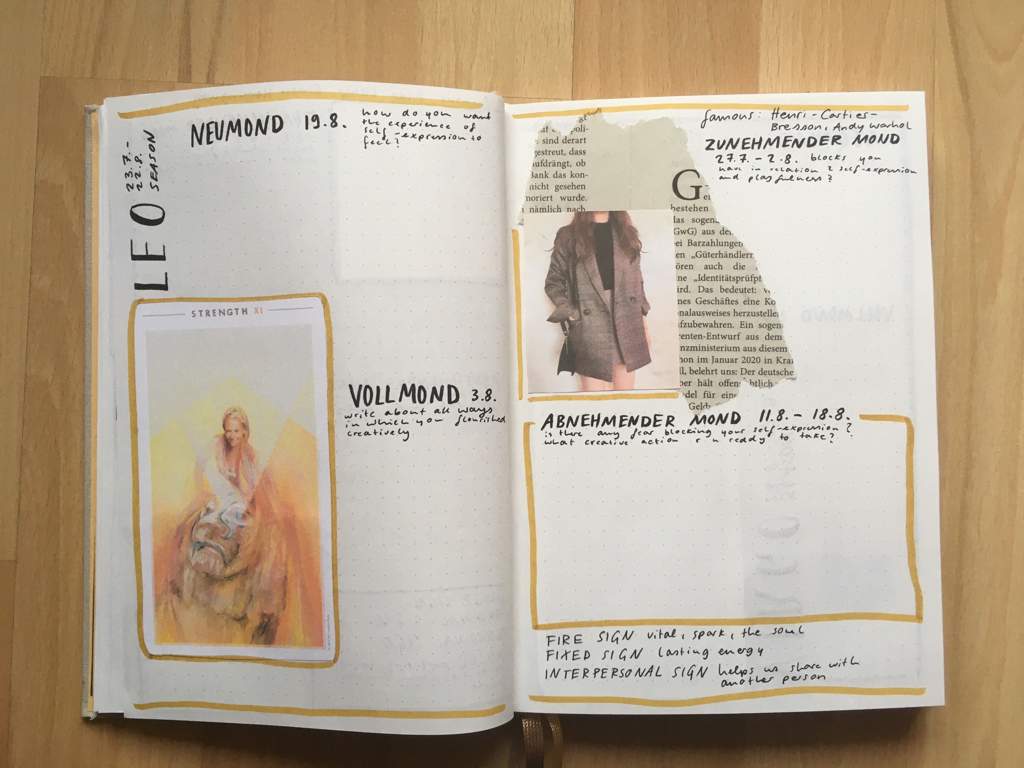 23.7. -
22.8.
SEASON
LEO
NEUMOND 19.8.
how do you want
the experience of
self-expression to
feel?
STRENGTH XI
VOLLMOND 3.8.
write about all ways
in which you flourished
creatively
famous: Henri-Carties-
Bresson, Andy Warhol
ZUNEHMENDER MOND
27.7. - 2.8. blocks you
have in relation 2 self-expression
and playfulness?
sind derart
gestreut, dass
aufdrängt, ob
Bank das kon-
nicht gesehen
noriert wurde.
nämlich nach
G
bestehen
das sogen
GwG) aus de
bei Barzahlungen
en „Güterhändlern
ören auch die
ne „Identitätsprüfp
ird. Das bedeutet: v
nes Geschäftes eine Ko
nalausweises herzustelle
fzubewahren. Ein sogen
renten-Entwurf aus dem
nzministerium aus diesem
hon im Januar 2020 in Kra
l, belehrt uns: Der deutsche
ber hält offen btlich
del für eine
Geld
ABNEHMENDER MOND 11.8. - 18.8.
is there any fear blocking your self-expression?
what creative action r u reddy to take?
FIRE SIGN vital, spark, the soul
FIXED SIGN lasting energy
INTERPERSONAL SIGN helps us share with
another person